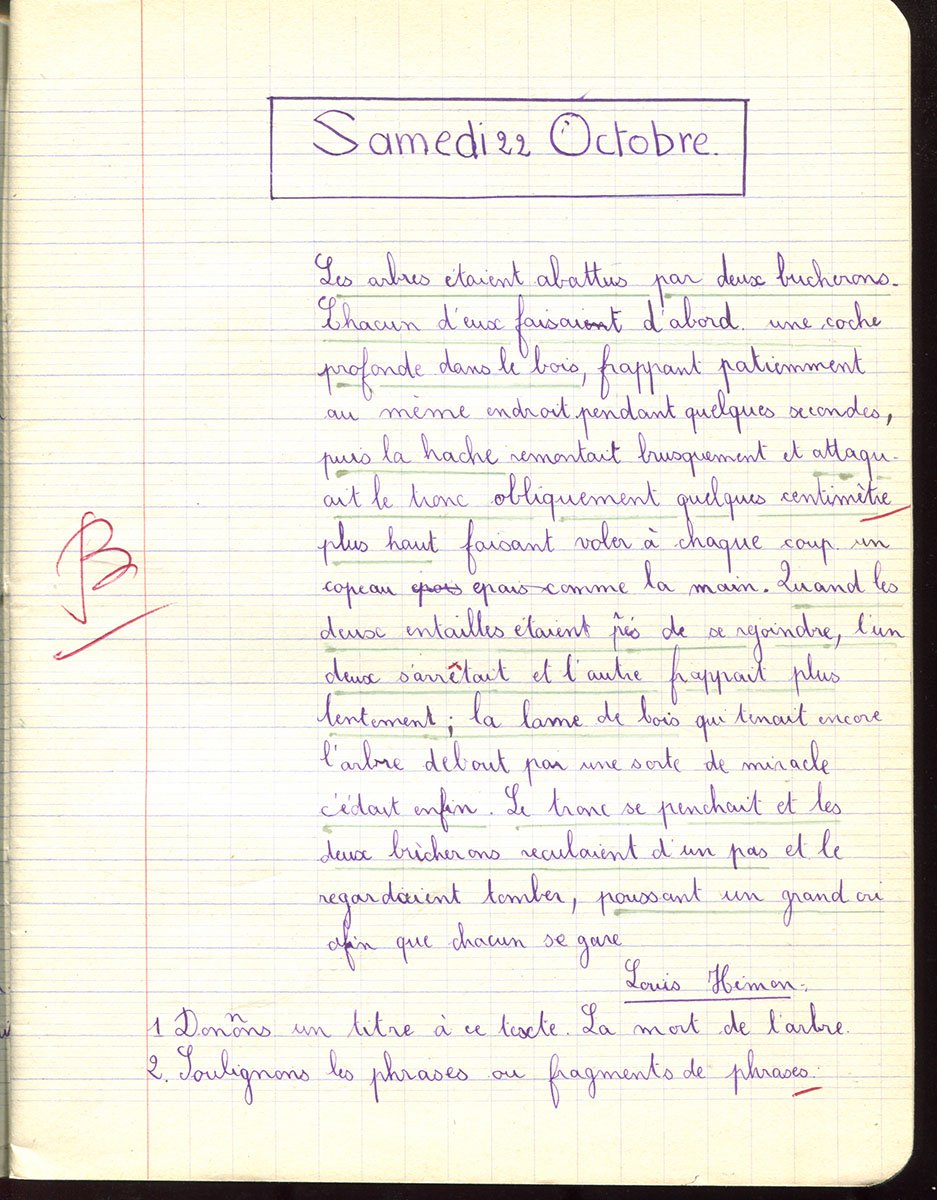 Samedi 22 Octobre.
Les arbres étaient abattus par deux bucherons.
Chacun d'eux faisaient d'abord une coche
profonde dans le bois, frappant patiemment
au même endroit pendant quelques secondes,
puis la hache remontait brusquement et attaqu-
ait le tronc obliquement quelques centimètre
plus haut faisant voler à chaque coup un
copeau epais epais comme la main. Quand les
deux entailles étaient près de se rejoindre, l'un
deux s'arrêtait et l'autre frappait plus
lentement; la lame de bois qui tenait encore
l'arbre debout par une sorte de miracle
c'édait enfin. Le tronc se penchait et les
deux bûcherons reculaient d'un pas et le
regardaient tomber, poussant un grand cri
afin que chacun se gare
Louis Hémon.
B
1 Donnons un titre à ce texte. La mort de l'arbre.
2. Soulignons les phrases ou fragments de phrases.